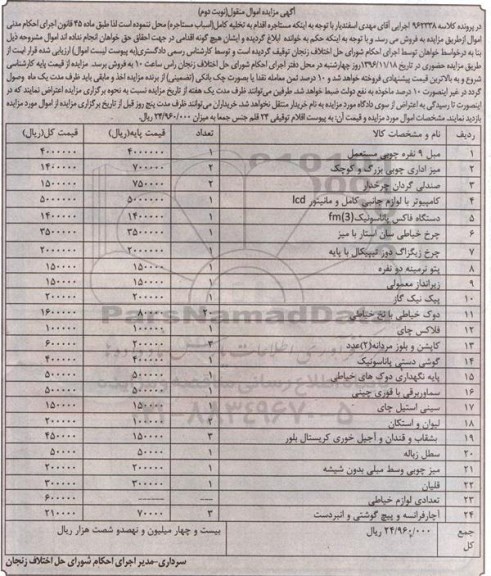 آگهی مزایده اموال منقول(نوبت دوم)
در پرونده کلاسه ۹۶۲۳۳۸ اجرایی آقای مهدی اسفندیار با توجه به اینکه مستاجره اقدام به تخلیه کامل(اسباب مستاجره) محل ننموده است لذا طبق ماده ۴۵ قانون اجرای احکام مدنی
اموال ازطریق مزایده به فروش می رسد. و با توجه به اینکه حکم به خوانده ابلاغ گردیده و ایشان هیچ گونه اقدامی در جهت احقاق حق خواهان انجام نداده اند اموال مشروحه ذیل
بنا به درخواست خواهان توسط اجرای احکام شورای حل اختلاف زنجان توقیف گردیده است و توسط کارشناس رسمی دادگستری(به پیوست لیست اموال) ارزیابی شده قرار است از
طریق مزایده حضوری در تاریخ ۱۳۹۶/۱۱/۱۸روز چهارشنبه در محل دفتر اجرای احکام شورای حل اختلاف زنجان راس ساعت ۱۰ به فروش برسد. مزایده از قیمت پایه کارشناسی
شروع و به بالاترین قیمت پیشنهادی فروخته خواهد شد و ۱۰ درصد ثمن معامله نقدا یا بصورت چک بانکی (تضمینی) از برنده مزایده اخذ و مابقی باید ظرف مدت یک ماه وصول
گردد در غیر اینصورت ۱۰ درصد ماخوذه به نفع دولت ضبط خواهد شد. طرفین می توانند ظرف مدت یک هفته از تاریخ مزایده نسبت به نحوه برگزاری مزایده اعتراض نمایند که در
اینصورت تا رسیدگی به اعتراض از سوی دادگاه مورد مزایده به نام خریدار منتقل نخواهد شد. خریداران می توانند ظرف مدت پنج روز قبل از تاریخ برگزاری مزایده از اموال مورد مزایده
بازدید نمایند. مشخصات اموال مورد مزایده و قیمت آن: به پیوست اقلام توقیفی ۲۴ قلم جنس جمعا به میزان ۲۴/۹۶۰/۰۰۰ ریال.
ردیف نام و مشخصات کالا تعداد قیمت پایه(ریال) قیمت کل(ریال)
۱ مبل ۹ نفره چوبی مستعمل ۱ ۴۰۰۰۰۰۰ ۴۰۰۰۰۰۰
۲ میز اداری چوبی بزرگ و کوچک ۲ ۷۰۰۰۰۰ ۱۴۰۰۰۰۰
۳ صندلی گردان چرخدار ۲ ۷۵۰۰۰۰ ۱۵۰۰۰۰۰
۴ کامپیوتر با لوازم جانبی کامل و مانیتور lcd ۱ ۵۰۰۰۰۰۰ ۵۰۰۰۰۰۰
۵ دستگاه فاکس پاناسونیک fm(3) ۱ ۱۴۰۰۰۰۰ ۱۴۰۰۰۰۰
۶ چرخ خیاطی سان استار با میز ۱ ۳۵۰۰۰۰۰ ۳۵۰۰۰۰۰
۷ چرخ زیگزاگ دوز تیپیکال با پایه ۱ ۲۰۰۰۰۰۰ ۲۰۰۰۰۰۰
۸ پتو نرمینه دو نفره ۱ ۱۵۰۰۰۰ ۱۵۰۰۰۰
۹ زیرانداز معمولی ۱ ۱۵۰۰۰۰ ۱۵۰۰۰۰
۱۰ پیک نیک گاز ۱ ۲۰۰۰۰۰ ۲۰۰۰۰۰
۱۱ دوک خیاطی با نخ خیاطی ۱۶۰۰۰۰۰
۱۲ فلاکس چای ۱ ۱۰۰۰۰۰ ۱۰۰۰۰۰
۱۳ کاپشن و بلوز مردانه(۲)عدد ۲۰۰۰۰۰ ۶۰۰۰۰۰
۱۴ گوشی دستی پاناسونیک ۱ ۴۰۰۰۰۰ ۴۰۰۰۰۰
۱۵ پایه نگهداری دوک های خیاطی ۱ ۵۰۰۰۰۰ ۵۰۰۰۰۰
۱۶ سماوربرقی با قوری چینی ۱ ۵۰۰۰۰۰ ۵۰۰۰۰۰
۱۷ سینی استیل چای ۱ ۱۵۰۰۰۰ ۱۵۰۰۰۰
۱۸ لیوان و استکان ۲ ۱۰۰۰۰۰ ۲۰۰۰۰۰
۱۹ بشقاب و قندان و آجیل خوری کریستال بلور ۳ ۱۵۰۰۰۰ ۴۵۰۰۰۰
۲۰ سطل زباله ۱ ۵۰۰۰۰ ۵۰۰۰۰
۲۱ میز چوبی وسط مبلی بدون شیشه ۱ ۲۰۰۰۰۰ ۲۰۰۰۰۰
۲۲ قلیان ۱ ۳۰۰۰۰۰ ۳۰۰۰۰۰
۲۳ تعدادی لوازم خیاطی --- ------ ۶۰۰۰۰۰
۲۴ آچارفرانسه و پیچ گوشتی و انبردست ۳ ۷۰۰۰۰ ۲۱۰۰۰۰
جمع کل ۲۴/۹۶۰/۰۰۰ ریال بیست و چهار میلیون و نهصدو شصت هزار ریال
سرداری-مدیر اجرای احکام شورای حل اختلاف زنجان
ParsNamadData
۰۲۱-۸۸۳۴۹۶۷۰-۵